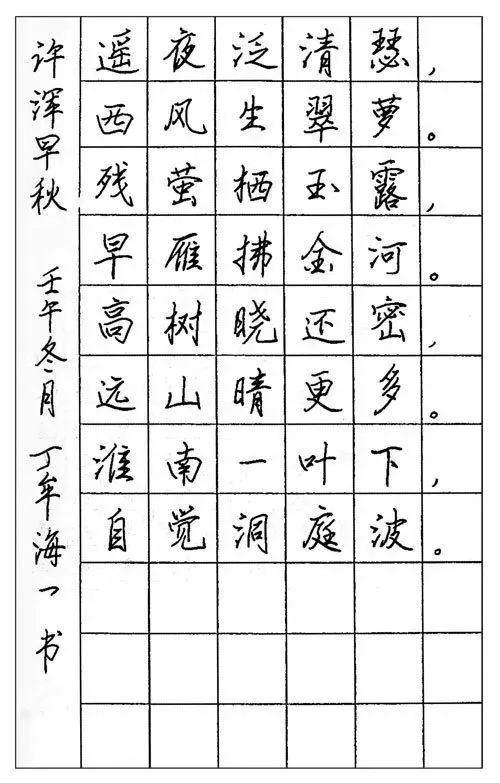 许浑早秋 壬午冬月 丁年海一书
遥夜泛清瑟，
西风生翠萝。
残萤栖玉露，
早雁拂金河。
高树晓还密，
远山晴更多。
淮南一叶下，
自觉洞庭波。